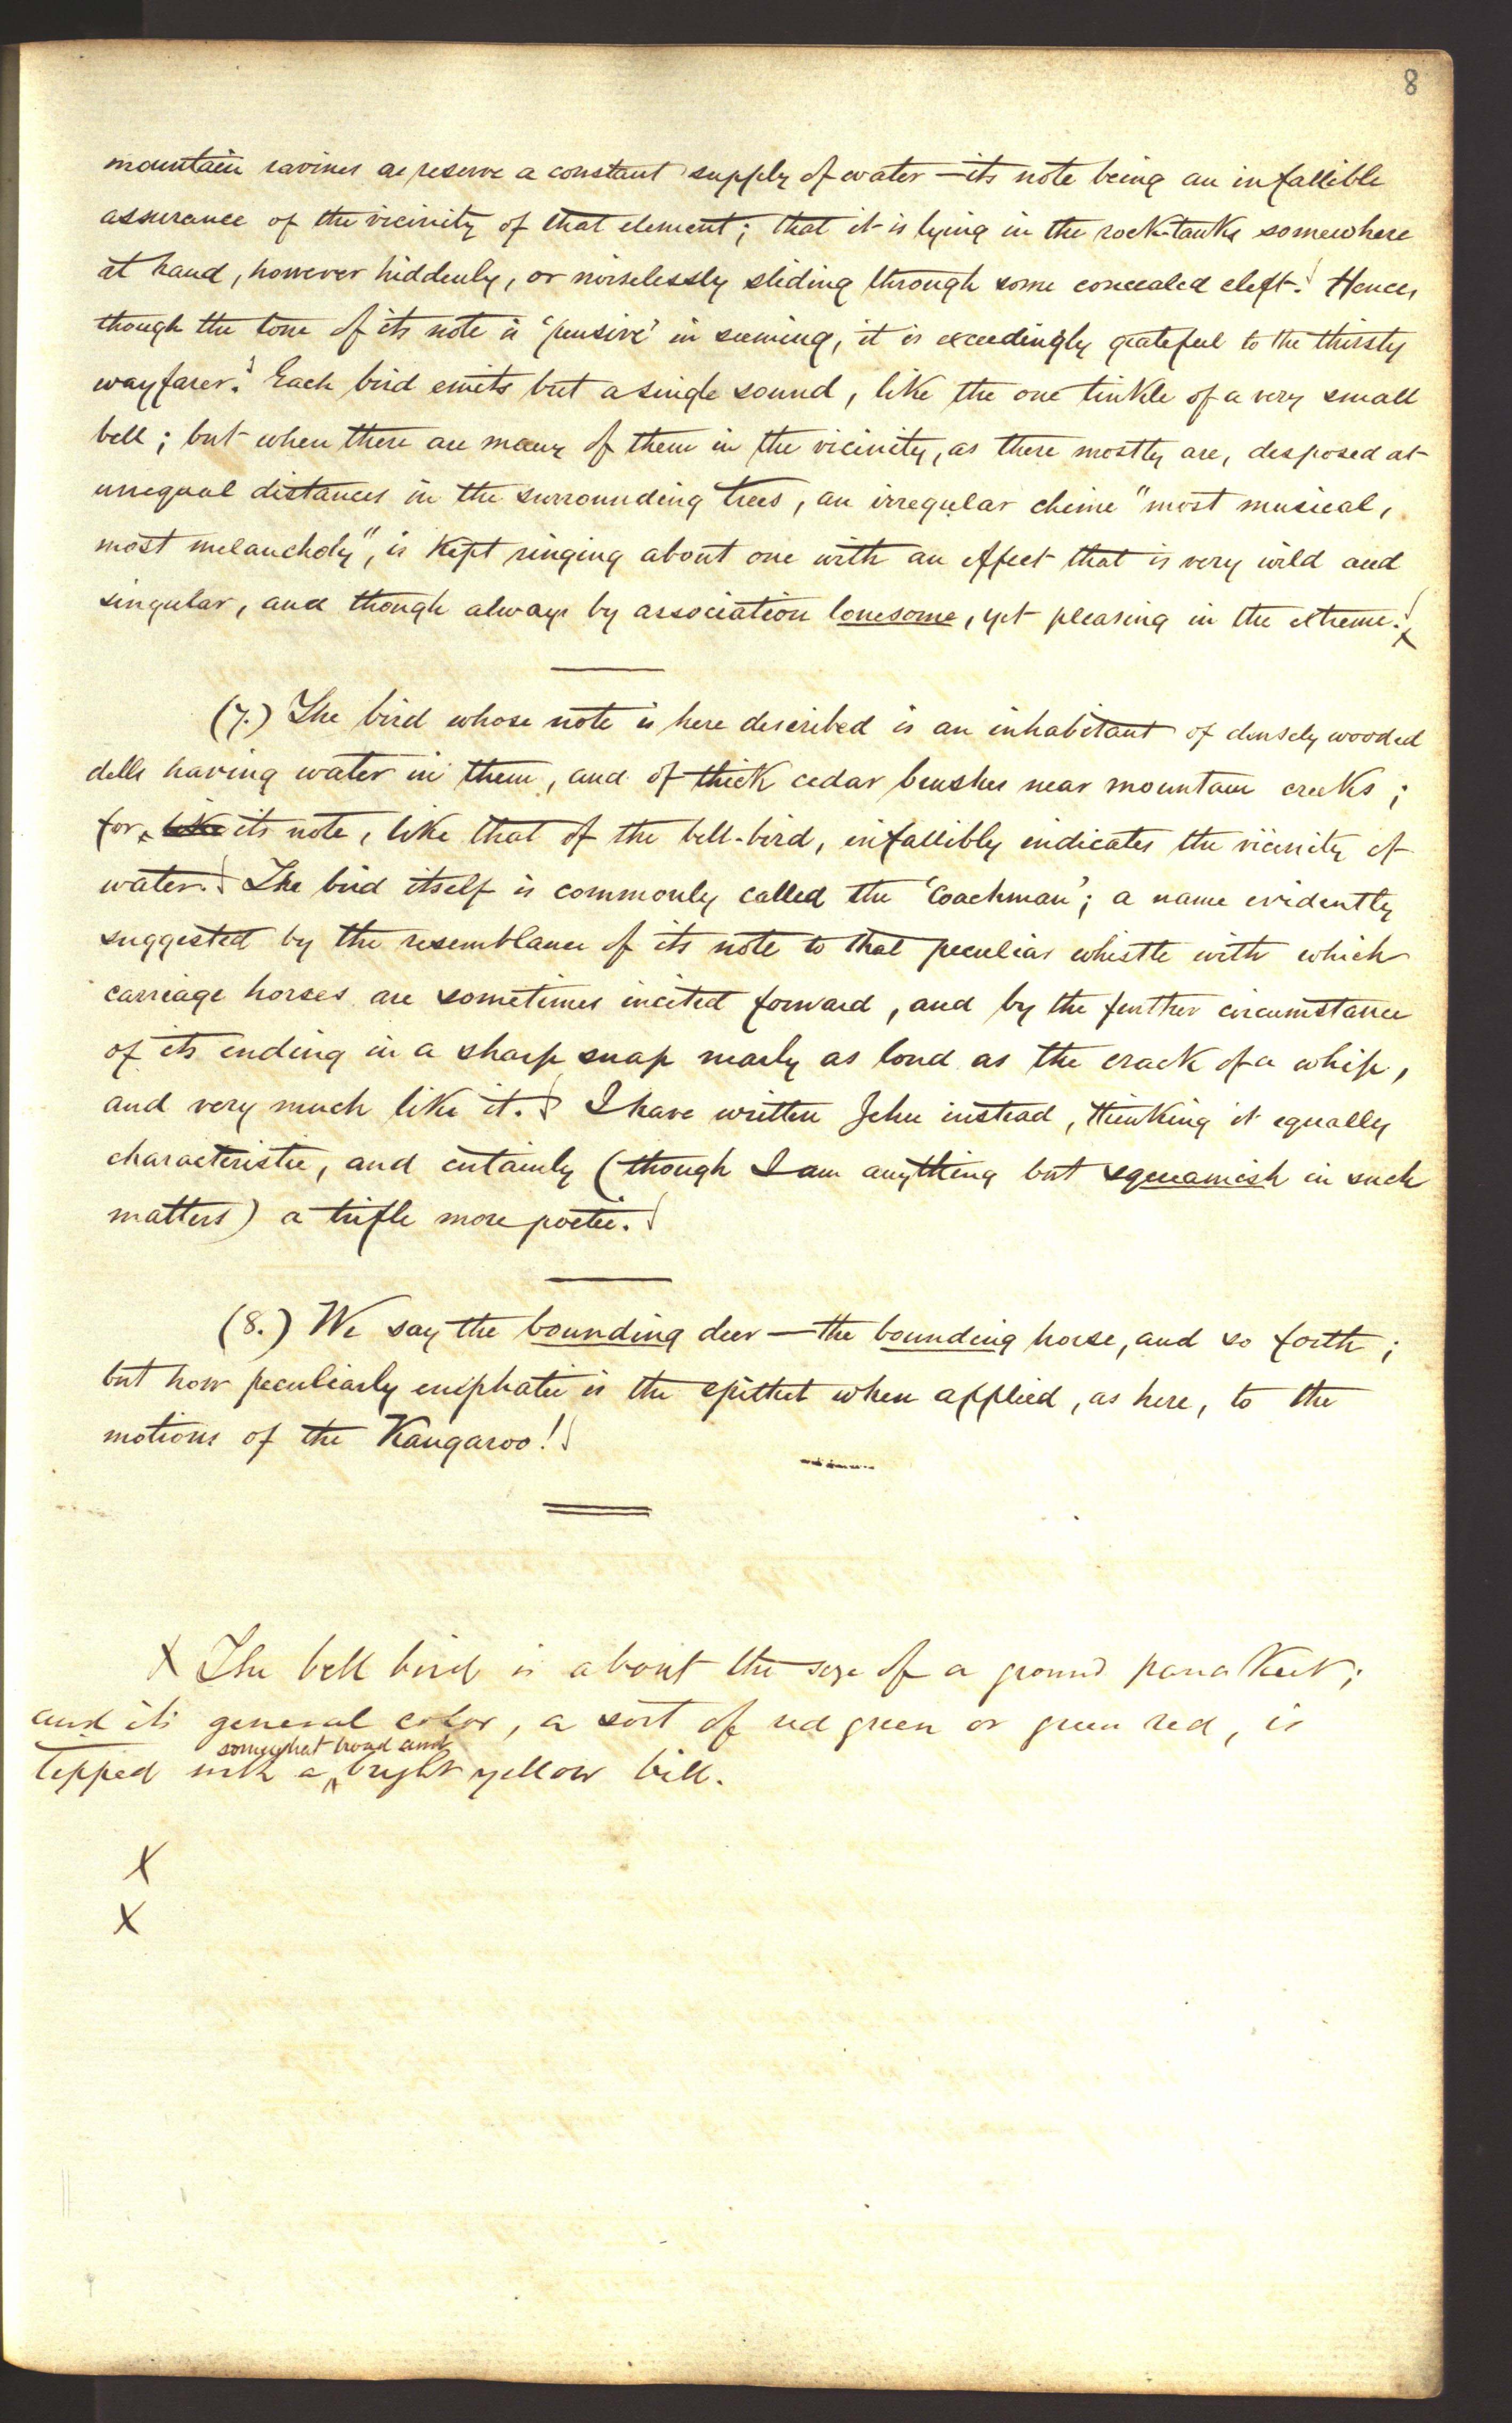 8
mountain ravines as reserve a constant supply of water — its note being an infallible
assurance of the vicinity of that element; that it is lying in the rock-tanks somewhere
at hand, however hiddenly, or noiselessly sliding through some concealed cleft. Hence,
though the tone of its note is 'pensive' in seeming, it is exceedingly grateful to the thirsty
wayfarer. Each bird emits but a single sound, like the one tinkle of a very small
bell; but when there are many of them in the vicinity, as there mostly are, disposed at
unequal distances in the surrounding trees, an irregular chime "most musical,
most melancholy", is kept ringing about one with an effect that is very wild and
singular, and though always by association lonesome, yet pleasing in the extreme. X
(7.) The bird whose note is here described is an inhabitant of densely wooded
dells having water in them, and of thick cedar brushes near mountain creeks;
for, like its note, like that of the bell-bird, infallibly indicates the vicinity of
water. The bird itself is commonly called the 'Coachman'; a name evidently
suggested by the resemblance of its note to that peculiar whistle with which
carriage horses are sometimes incited forward, and by the further circumstance
of its ending in a sharp snap nearly as loud as the crack of a whip,
and very much like it. I have written Jehu instead, thinking it equally
characteristic, and certainly (though I am anything but squeamish in such
matters) a trifle more poetic.
(8.) We say the bounding deer — the bounding horse, and so forth;
but how peculiarly emphatic is the epithet when applied, as here, to the
motions of the Kangaroo!
X The bell bird is about the size of a ground parakeet;
and its general color, a sort of red green or green red, is
somewhat broad and
tipped with a bright yellow bill.
X
X